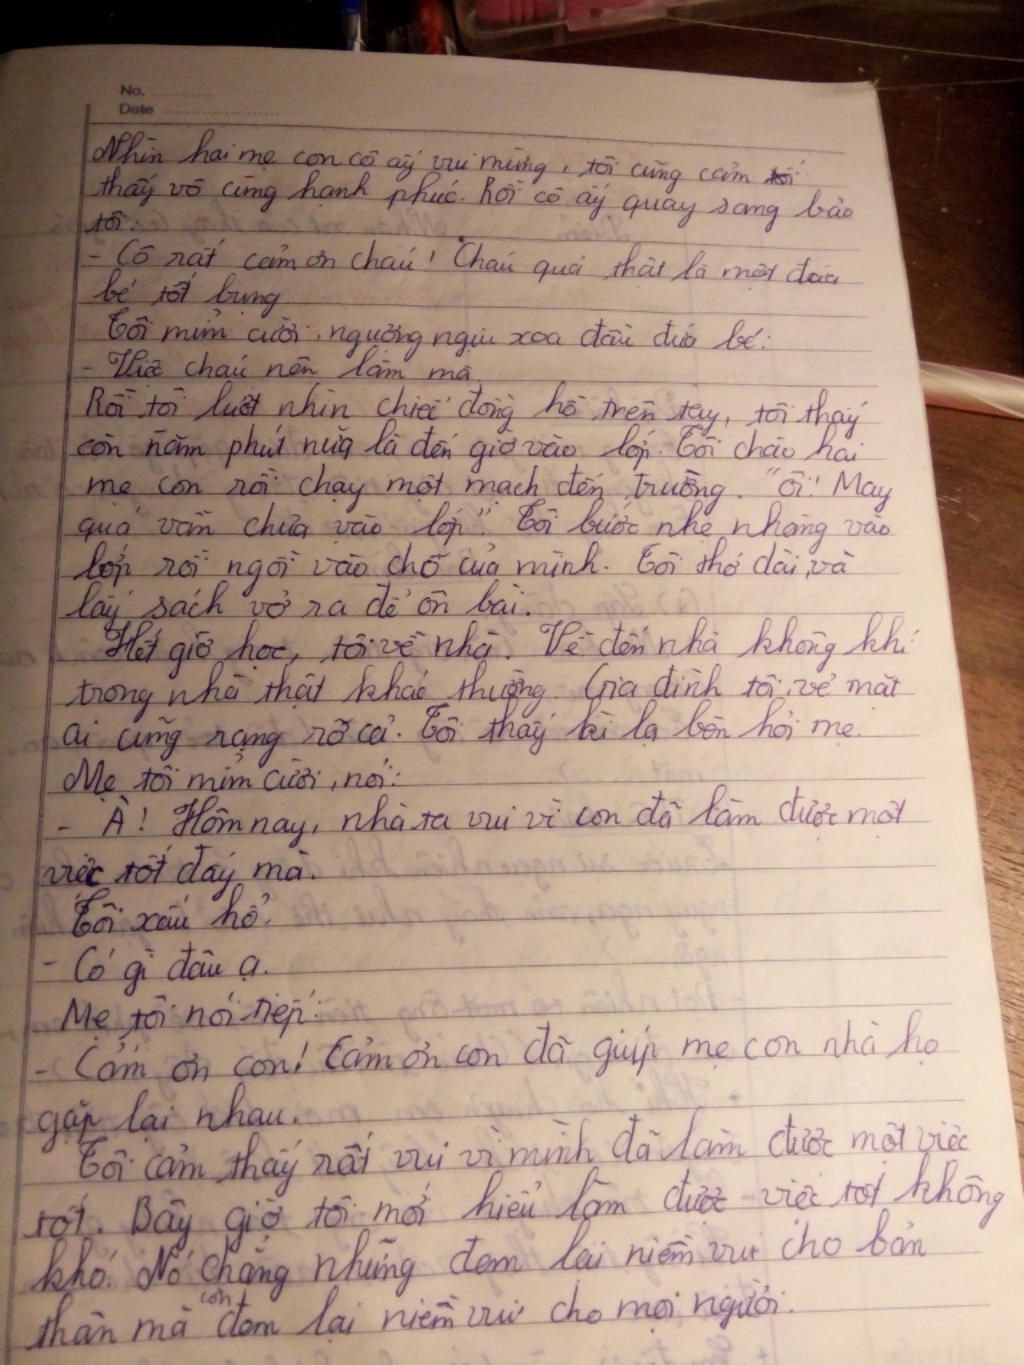 No. ............
Date ......................
Nhìn hai mẹ con cô ấy vui mừng, tôi cũng cảm
thấy vô cùng hạnh phúc. Rồi cô ấy quay sang bảo
tôi:
- Cô rất cảm ơn cháu! Cháu quả thật là một đứa
bé tốt bụng
Tôi mỉm cười, ngượng ngịu xoa đầu đứa bé:
- Việc cháu nên làm mà
Rồi tôi lướt nhìn chiếc đồng hồ trên tay, tôi thấy
còn năm phút nữa là đến giờ vào lớp. Tôi chào hai
mẹ con rồi chạy một mạch đến trường. "Ôi! May
quá vẫn chưa vào lớp". Tôi bước nhẹ nhàng vào
lớp rồi ngồi vào chỗ của mình. Tôi thở dài, và
lấy sách vở ra để ôn bài.
Hết giờ học, tôi về nhà. Về đến nhà không khí
trong nhà thật khác thường. Gia đình tôi, vẻ mặt
ai cũng rạng rỡ cả. Tôi thấy kì lạ bèn hỏi mẹ.
Mẹ tôi mỉm cười, nói:
- À! Hôm nay, nhà ta vui vì con đã làm được một
việc tốt đấy mà.
Tôi xấu hổ:
- Có gì đâu ạ.
Mẹ tôi nói tiếp:
- Cảm ơn con! Cảm ơn con đã giúp mẹ con nhà họ
gặp lại nhau.
Tôi cảm thấy rất vui vì mình đã làm được một việc
tốt. Bây giờ tôi mới hiểu làm được việc tốt không
khó. Nó chẳng những đem lại niềm vui cho bản
thân mà còn đem lại niềm vui cho mọi người.